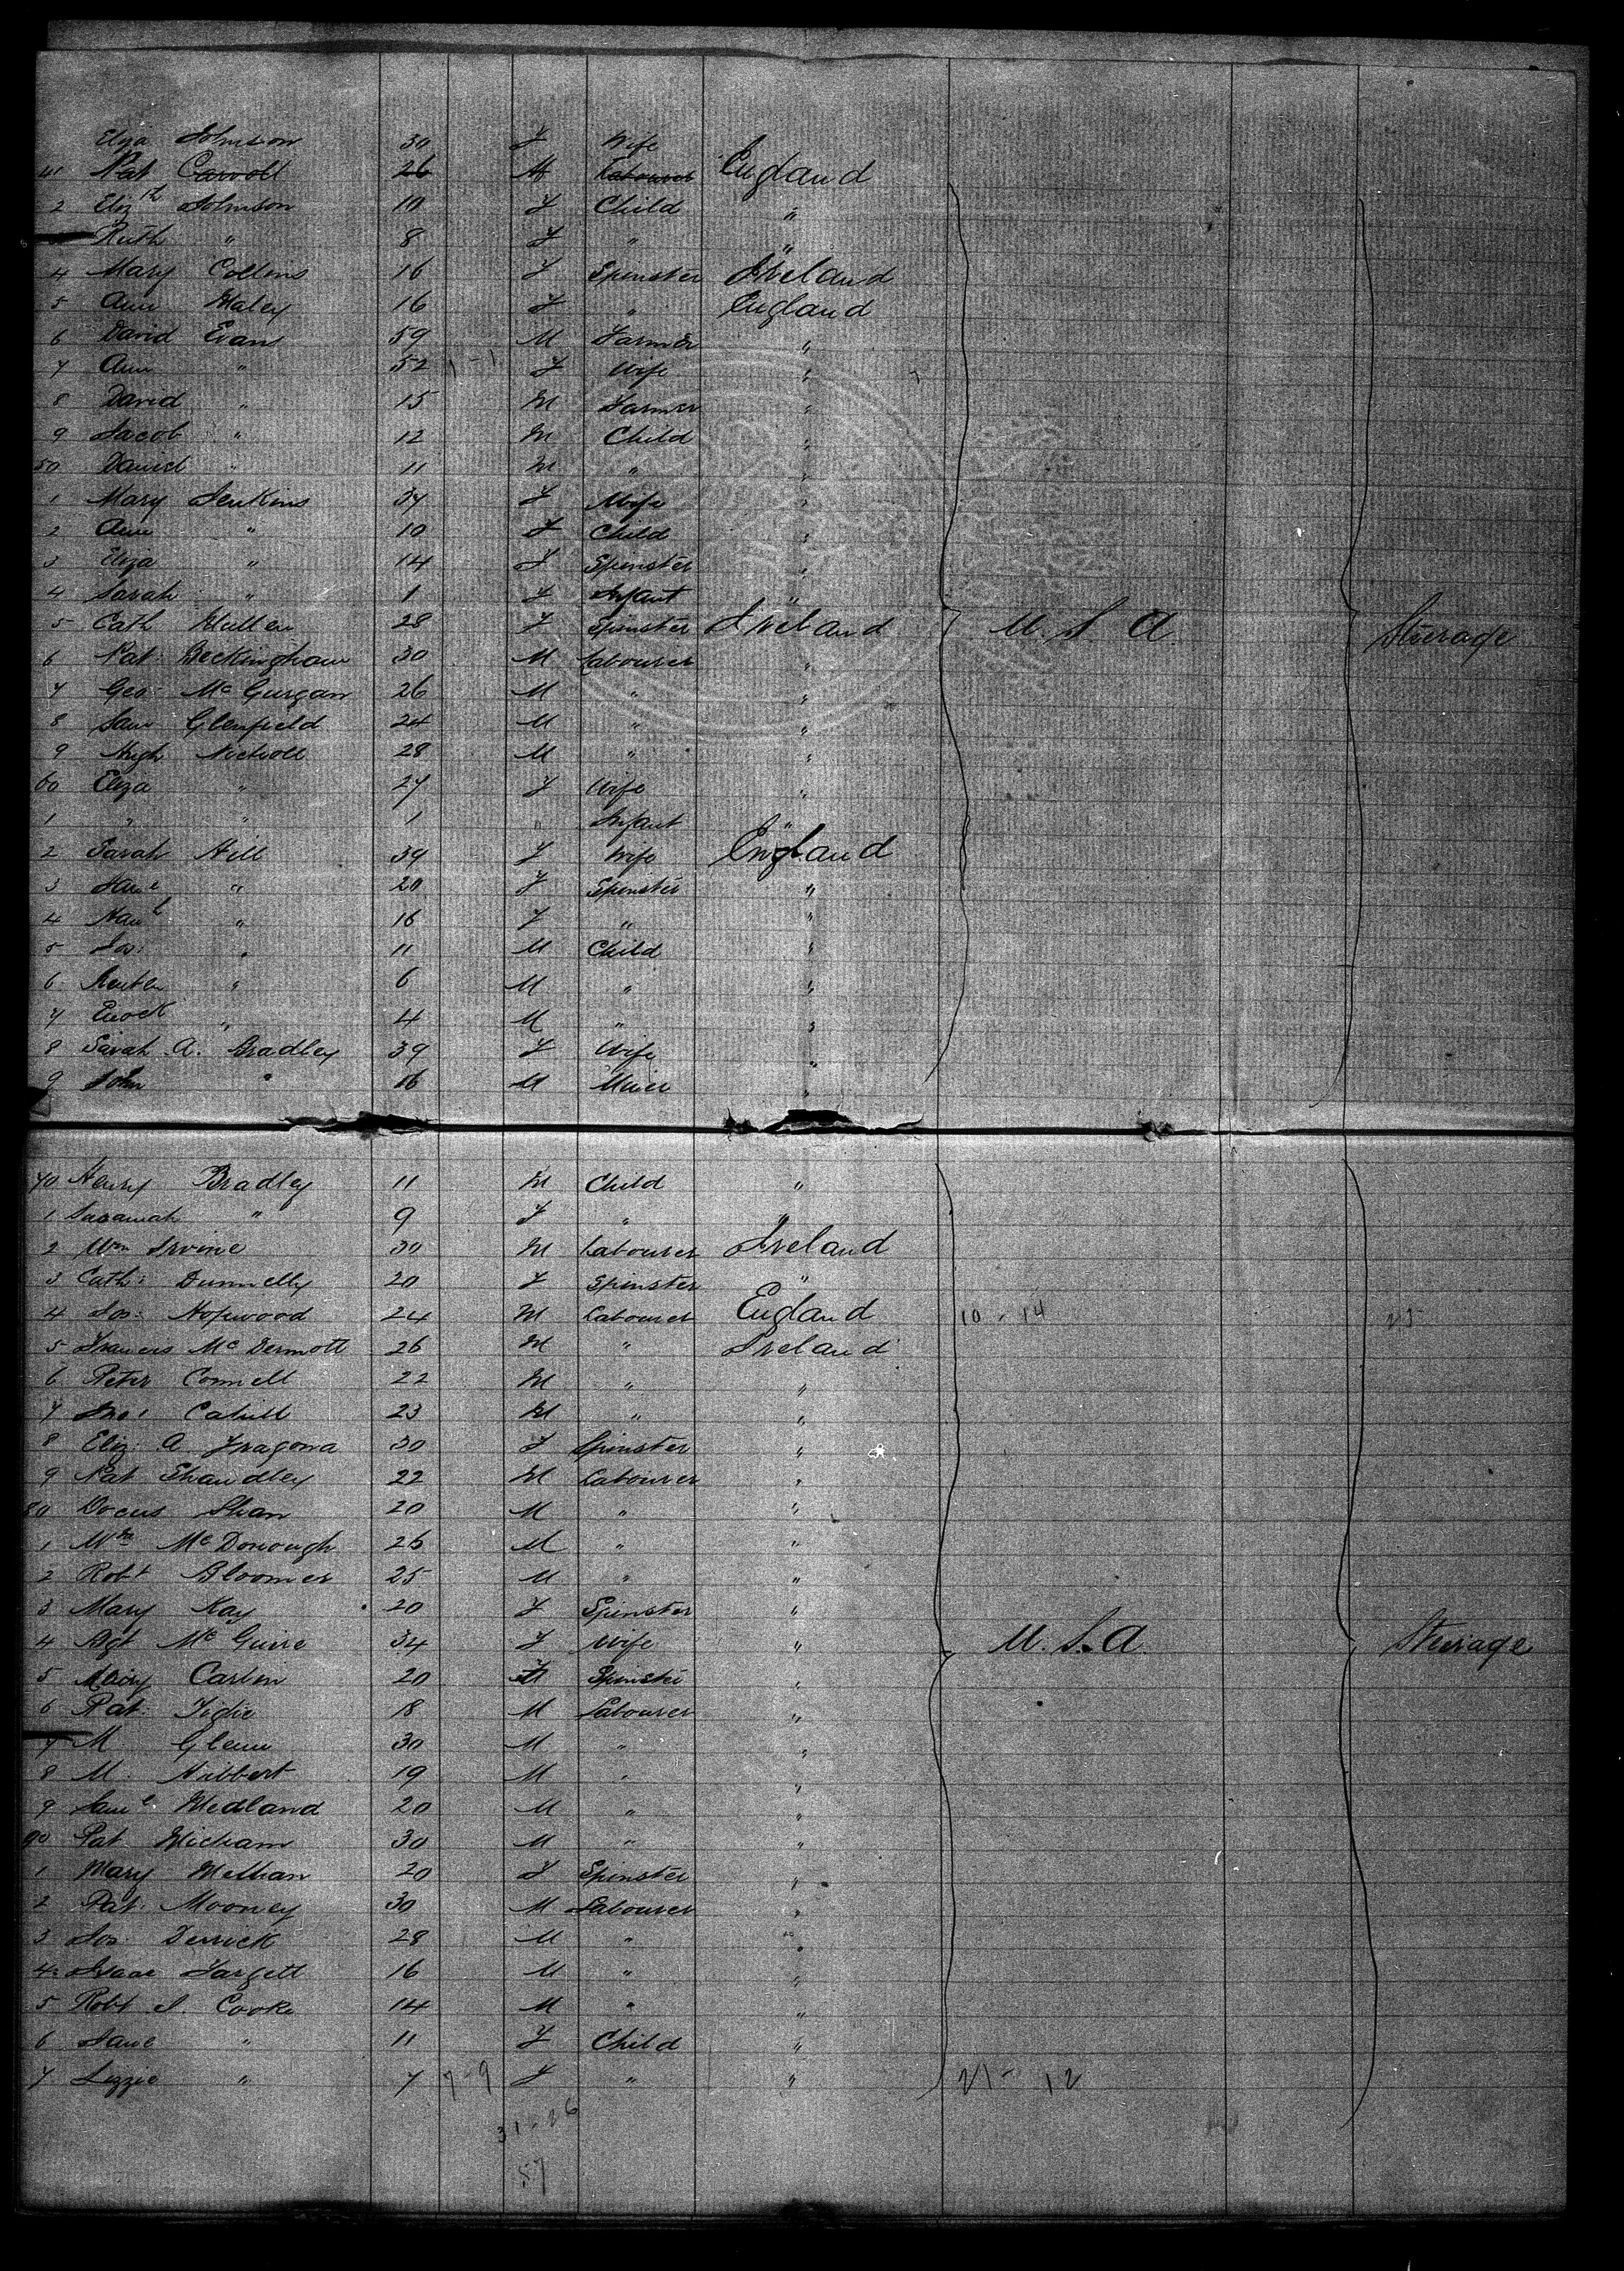 Eliza Johnson 30 F Wife
41 Pat Carroll 26 M Labourer England
2 Eliz.th Johnson 10 F Child "
Ruth " 8 F " "
4 Mary Collens 16 F Spinster Ireland
5 Ann Haley 16 F " England
6 David Evans 59 M Farmer "
7 Ann " 52 1-1 F Wife "
8 David " 15 M Farmer "
9 Jacob " 12 M Child "
50 Daniel " 11 M " "
1 Mary Jenkins 37 F Wife "
2 Ann " 10 F Child "
3 Eliza " 14 F Spinster "
4 Sarah " 1 F Infant "
5 Cath Mullen 28 F Spinster Ireland U.S.A Steerage
6 Pat: Beckingham 30 M Labourer "
7 Geo: McGurgan 26 M " "
8 Sam Glenfield 24 M " "
9 Hugh Nicholl 28 M " "
60 Eliza " 27 F Wife "
1 " " 1 " Infant "
2 Sarah Hill 39 F Wife England
3 Jane " 20 F Spinster "
4 Han.h " 16 F " "
5 Jos: " 11 M Child "
6 Reuben " 6 M " "
7 Enock " 4 M " "
8 Sarah A. Bradley 39 F Wife "
9 John " 16 M Miner "
70 Henry Bradley 11 M Child "
1 Susannah " 9 F " "
2 Wm Irvine 30 M Labourer Ireland
3 Cath: Dunnelly 20 F Spinster "
4 Jos: Hopwood 24 M Labourer England 10-14
5 Francis McDermott 26 M " Ireland
6 Peter Connell 22 M " "
7 Jno: Cahill 23 M " "
8 Eliz: A Fragona 30 F Spinster "
9 Pat Shandley 22 M Labourer "
80 Shean 20 M " "
1 Wm McDonough 26 M " "
2 Robt Bloomer 25 M " "
3 Mary Kay 20 F Spinster "
4 Bgt McGuire 34 F Wife " U.S.A. Steerage
5 Mary Carlin 20 F Spinster "
6 Pat: Tighe 18 M Labourer "
7 M Glenn 30 M " "
8 M. Hibbert 19 M " "
9 Saml Medland 20 M " "
90 Pat 30 M " "
1 Mary Meehan 20 F Spinster "
2 Pat: Mooney 30 M Labourer "
3 Jos: Derrick 28 M " "
4 Isaac Targett 16 M " "
5 Robt J. Cooke 14 M " "
6 Jane " 11 F Child "
7 Lizzie " 7 7-9 F " " 21-12
31-26
57